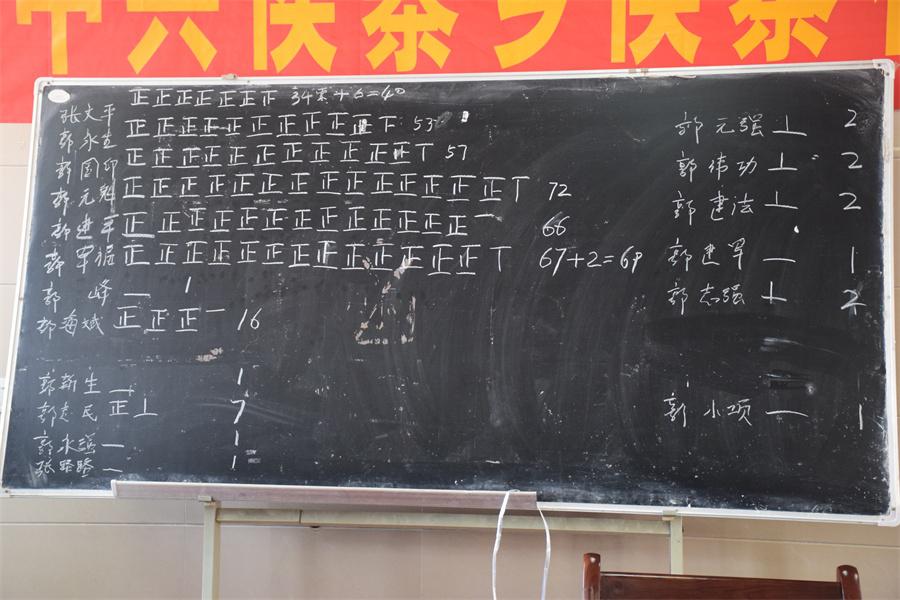 张大平 正正正正正正正 34票+6=40
郭永生 正正正正正正正正正正下 53
郭国印 正正正正正正正正正正正丅 57
郭元魁 正正正正正正正正正正正正正正丅 72
郭建军 正正正正正正正正正正正正正一 66
郭军据 正正正正正正正正正正正正正丅 67+2=69
郭峰 一 1
郭海斌 正正正一 16
郭新生 一 1
郭建民 正丄 7
郭永强 一 1
张路路 一 1
郭元强 丄 2
郭伟功 丄 2
郭建法 丄 2
郭建军 一 1
郭志强 丄 2
郭小项 一 1